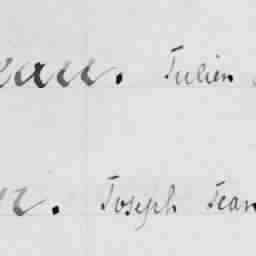 eau. Julien
Joseph Jean